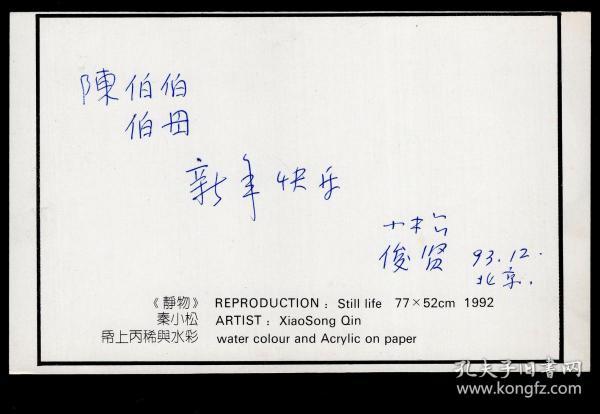 陳伯伯
伯母
新年快乐
小松
俊贤 93.12.
北京.
《靜物》 REPRODUCTION : Still life 77×52cm 1992
秦小松 ARTIST : XiaoSong Qin
帋上丙稀與水彩 water colour and Acrylic on paper
孔夫子旧书网
www.kongfz.com